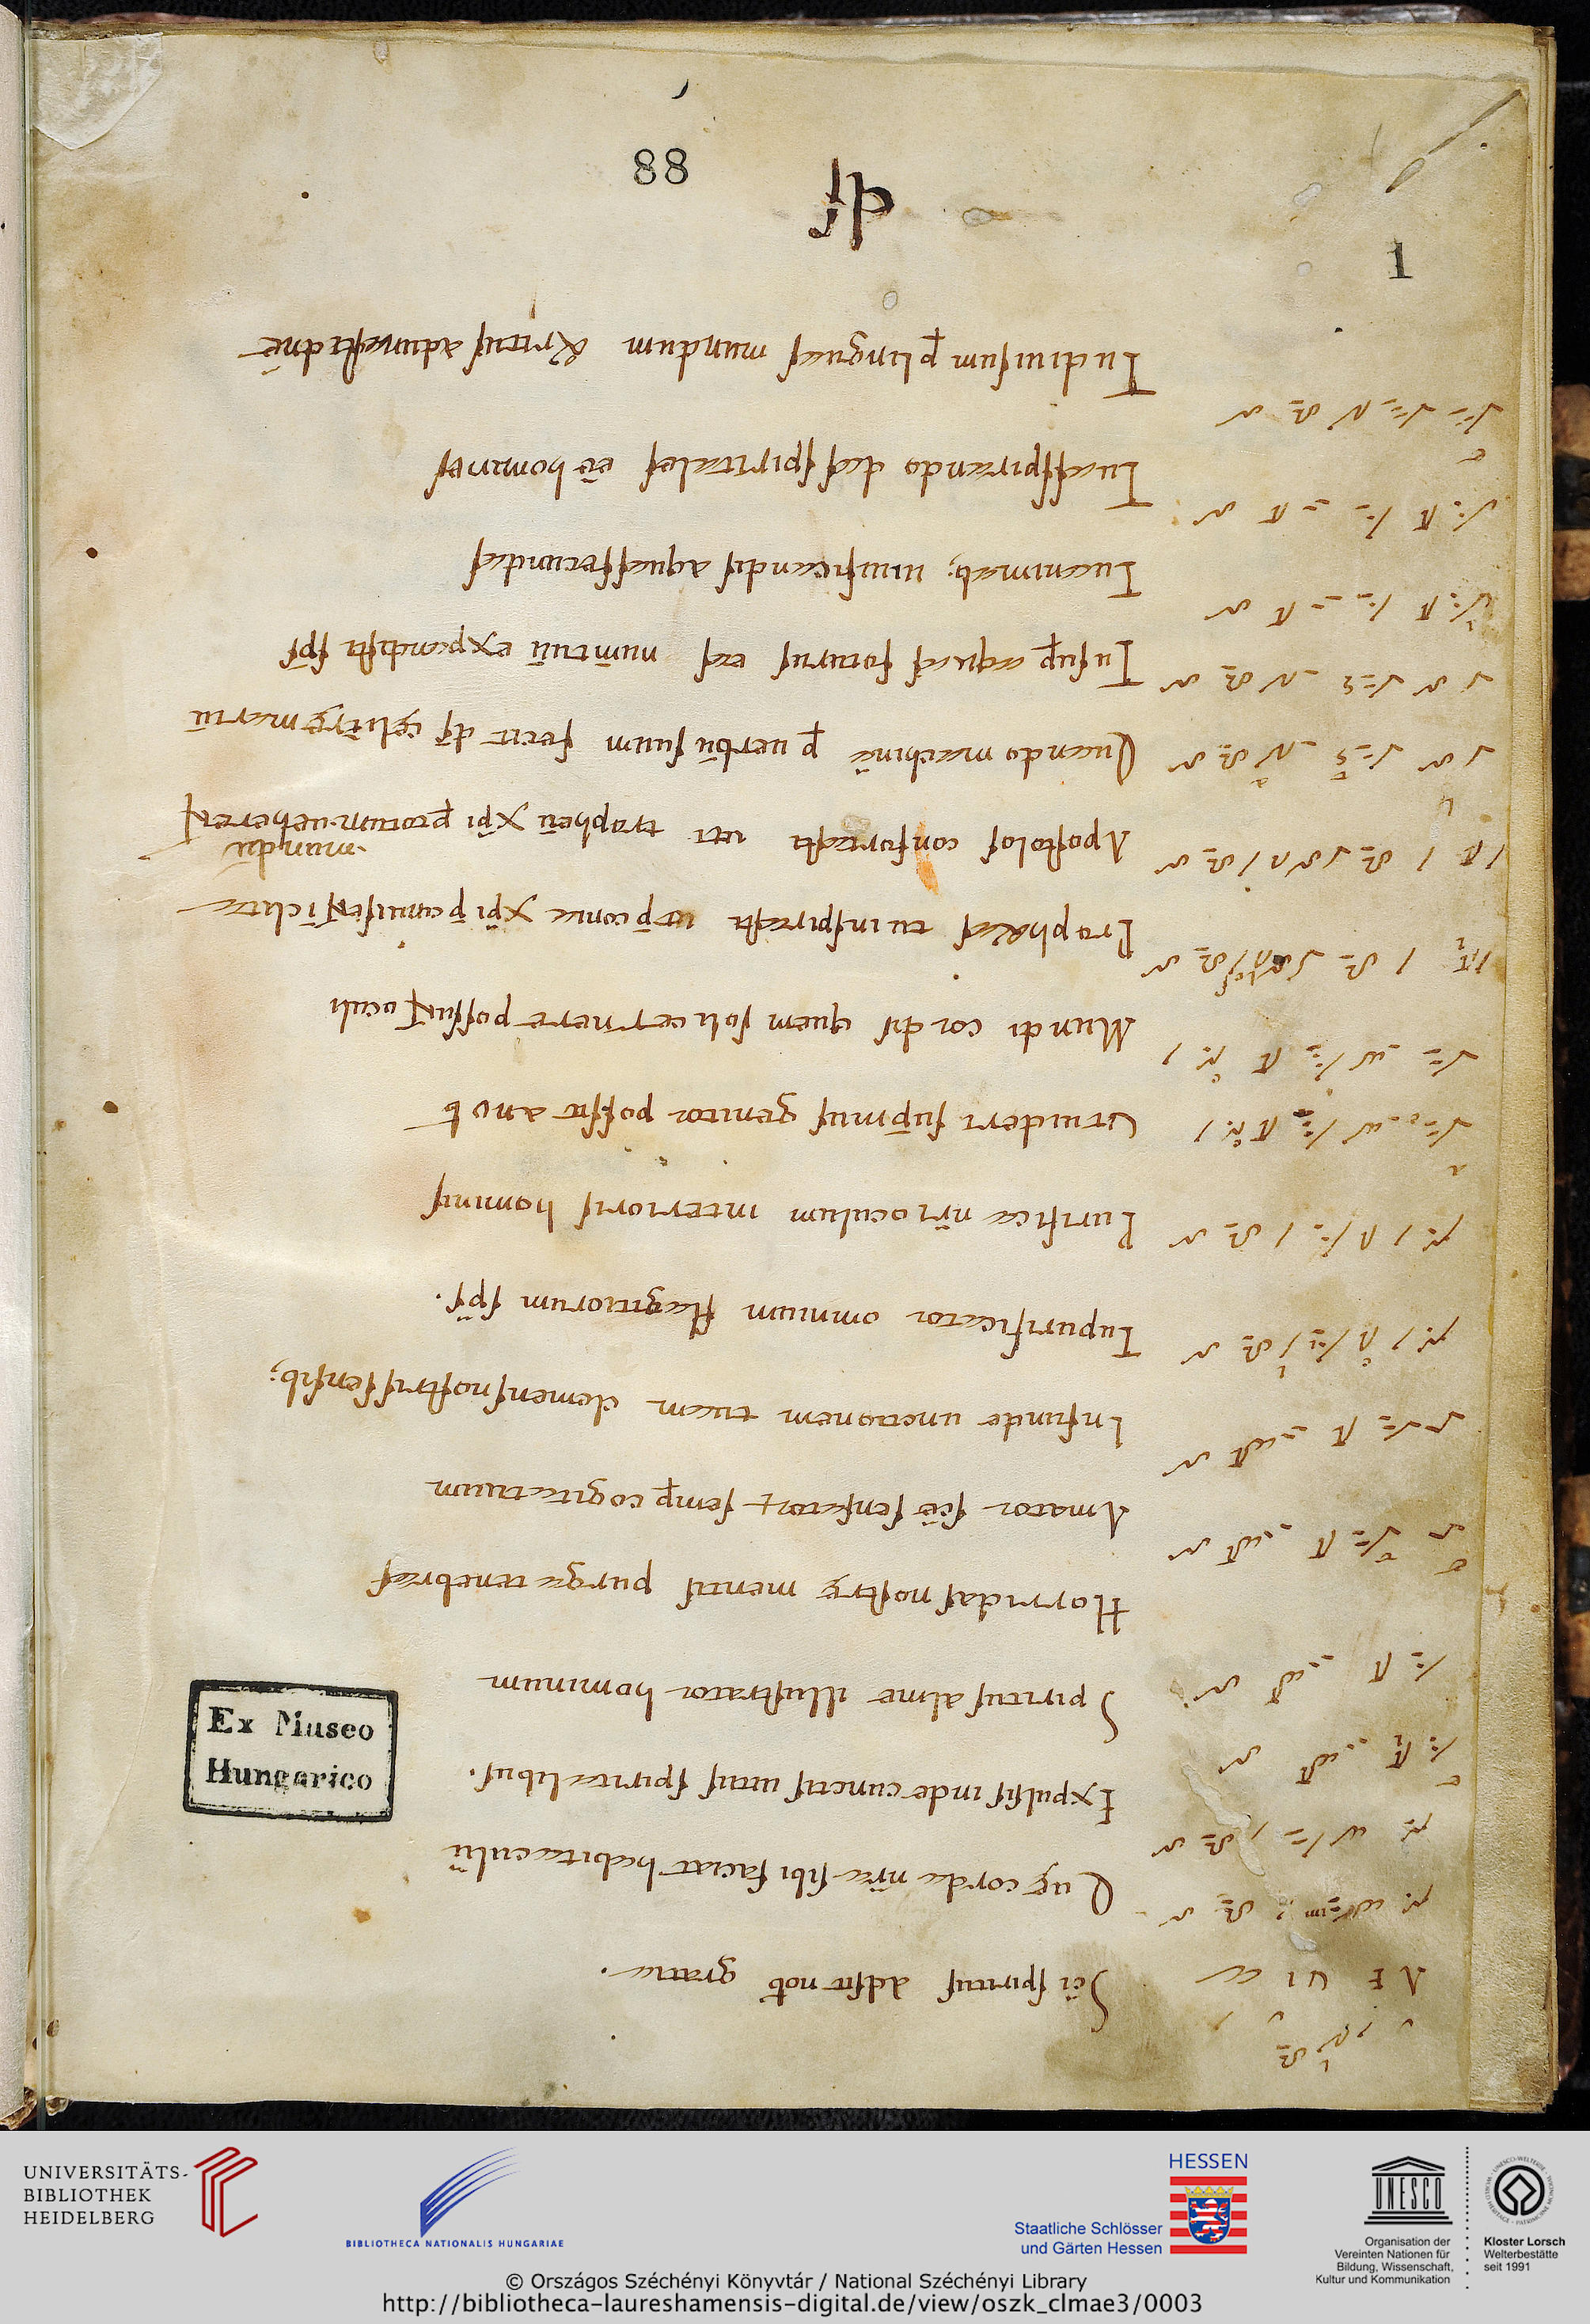 88
1
Sc̄i spiritus adsit nob̄ gratia.
AEUIA
Quę corda nr̄a sibi faciat habitaculū
Expulsis inde cunctis uitiis spiritalibus.
Spiritus alme illustrator hominum
Horridas nostrę mentis purga tenebras
Amator sc̄e sensatorƺ semp̄ cogitatuum
Infunde unctionem tuam clemens nostris sensib;
Tu purificator omnium flagitiorum sp̄s.
Purifica nr̄i oculum interioris hominis
Ut uideri sup̄mus genitor possit a nob̄
Mundi cordis quem soli cernere possunt oculi
Prophetas tu inspirasti ut p̄conia xp̄i p̄cinuissent īclita
Apostolos confortasti uti tropheū xp̄i p̄ totum ueherent
mundū
Quando machinā p̄ uerbū suum fecit ds̄ cęli terrę mariū
Tu sup̄ aquas foturus eas num̄ tuū expandisti sp̄s
Tu animab; uiuificandis aquas fecundas
Tu aspirando das spiritales eē homines
Tu diuisum p̄ linguas mundum & ritus adunasti dn̄e
Ex Museo
Hungarico
UNIVERSITÄTS-
BIBLIOTHEK
HEIDELBERG
BIBLIOTHECA NATIONALIS HUNGARIAE
HESSEN
Staatliche Schlösser
und Gärten Hessen
UNESCO
Organisation der
Vereinten Nationen für
Bildung, Wissenschaft,
Kultur und Kommunikation
Kloster Lorsch
Welterbestätte
seit 1991
© Országos Széchényi Könyvtár / National Széchényi Library
http://bibliotheca-laureshamensis-digital.de/view/oszk_clmae3/0003